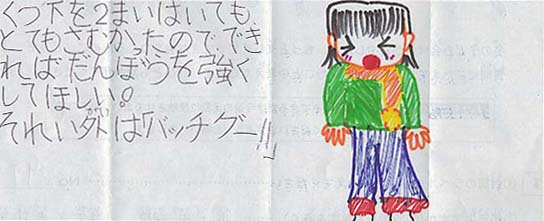 くつ下を2まいはいても、
とてもさむかったので、でき
ればだんぼうを強く
してほしい。
それい外は「バッチグー!!」